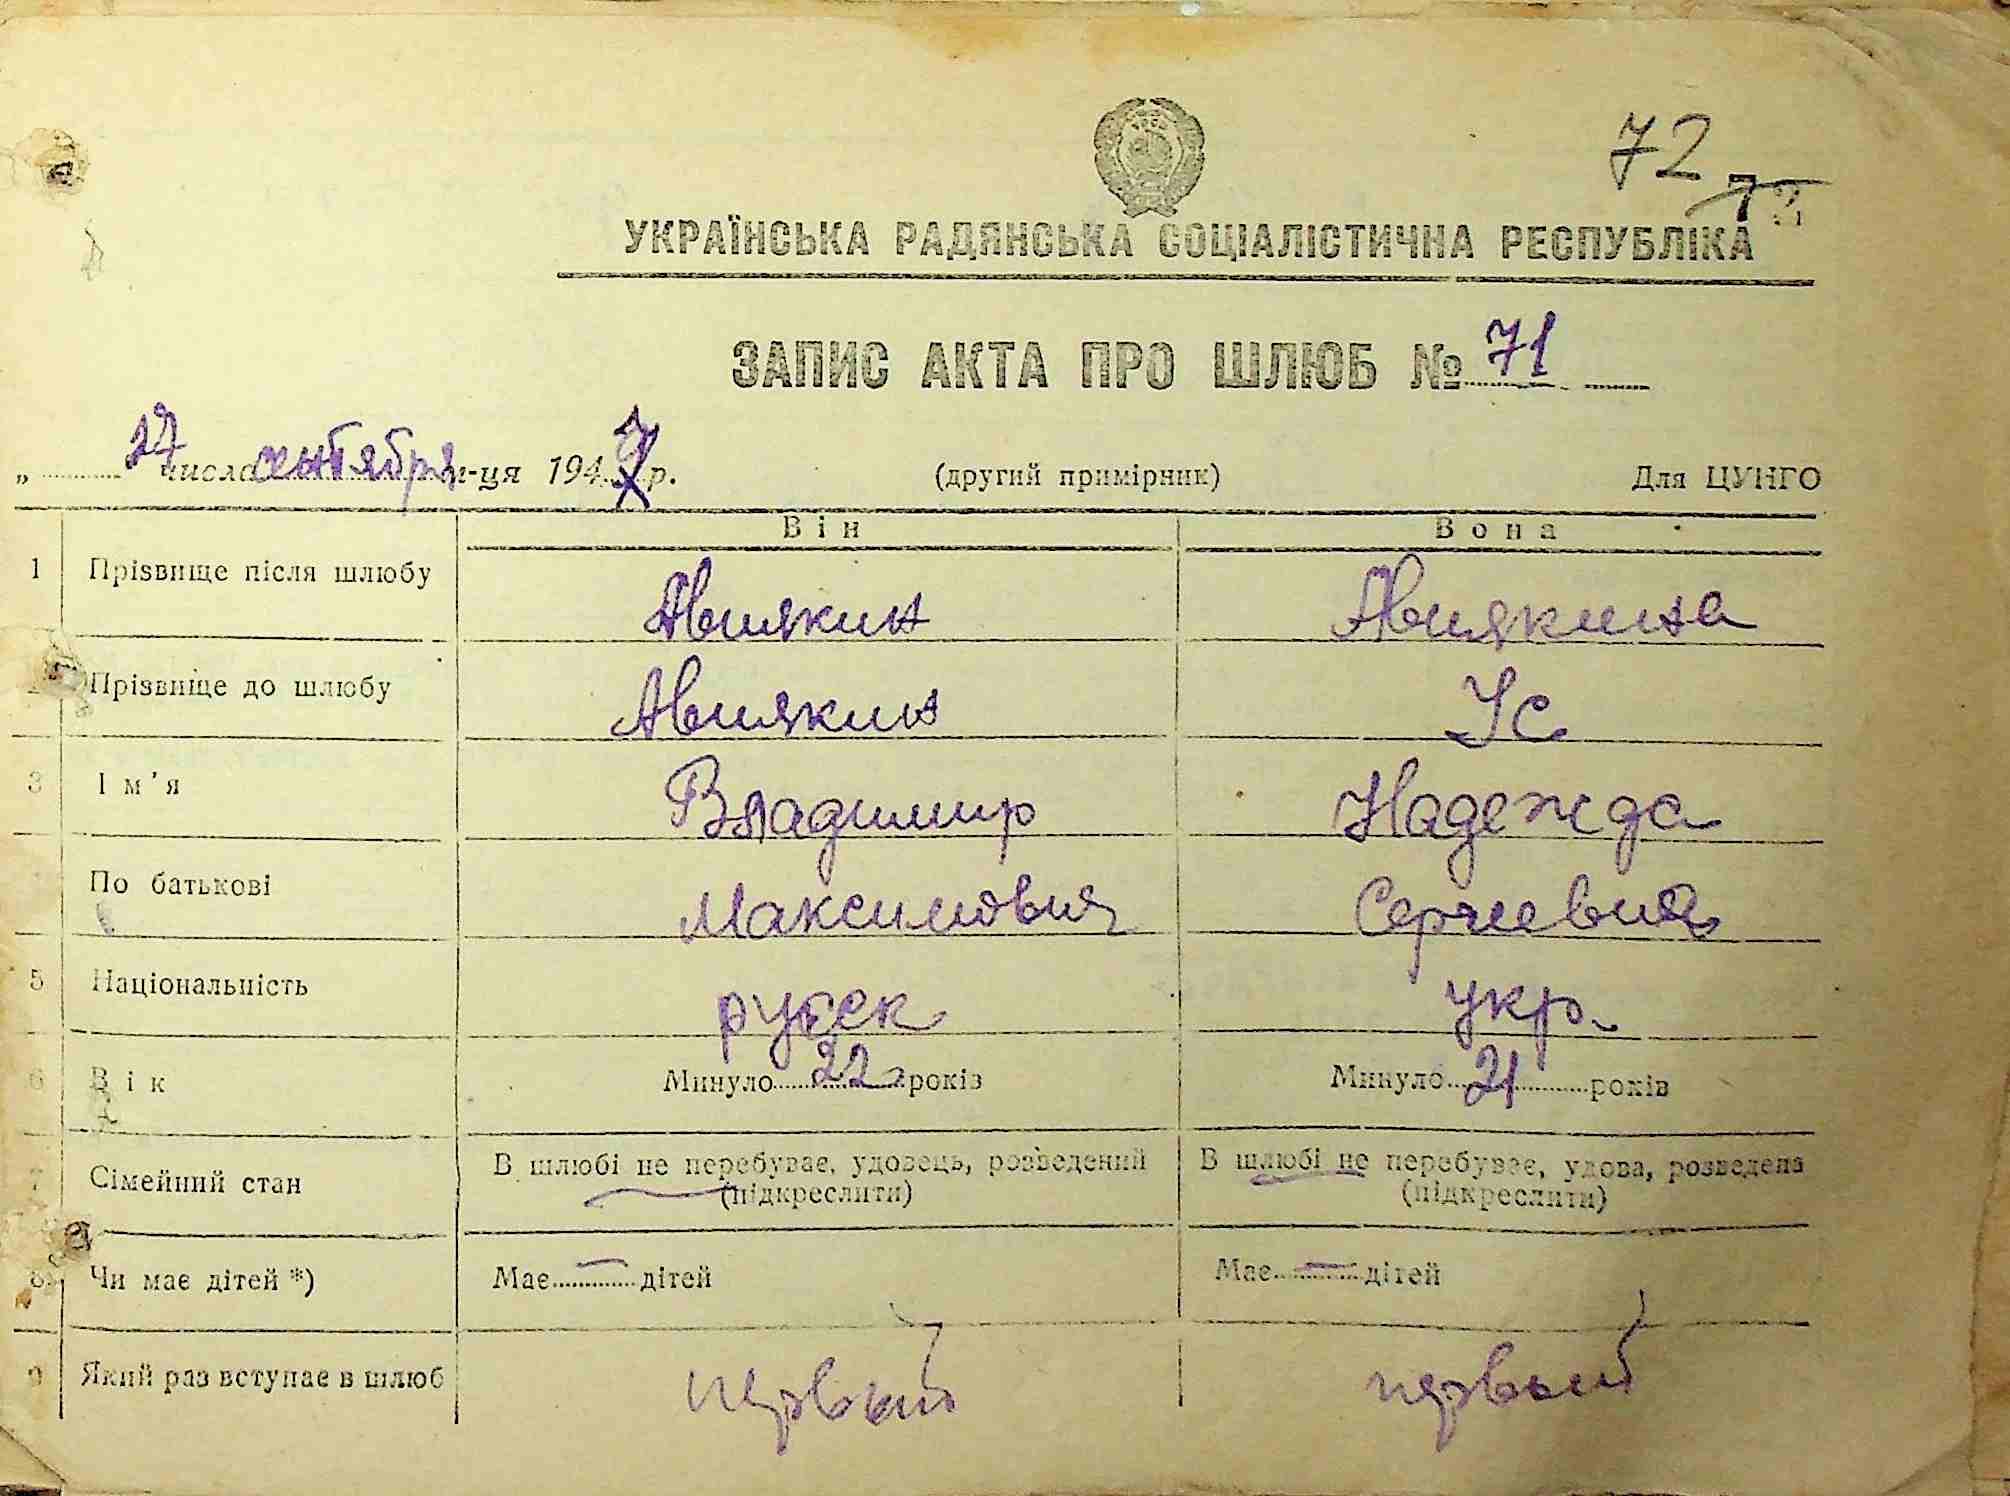 72
УКРАЇНСЬКА РАДЯНСЬКА СОЦІАЛІСТИЧНА РЕСПУБЛІКА
ЗАПИС АКТА ПРО ШЛЮБ № 71
„ 27 числа сентября м-ця 1947 р. (другий примірник) Для ЦУНГО
Він Вона
1 Прізвище після шлюбу Авилкин Авилкина
Прізвище до шлюбу Авилкин Ус
3 Ім'я Владимир Надежда
По батькові Максимович Сергиевна
5 Національність русск укр.
6 Вік Минуло 22 років Минуло 21 років
7 Сімейний стан В шлюбі не перебуває, удовець, розведений В шлюбі не перебуває, удова, розведена
(підкреслити) (підкреслити)
8 Чи має дітей *) Має — дітей Має — дітей
9 Який раз вступає в шлюб первый первый